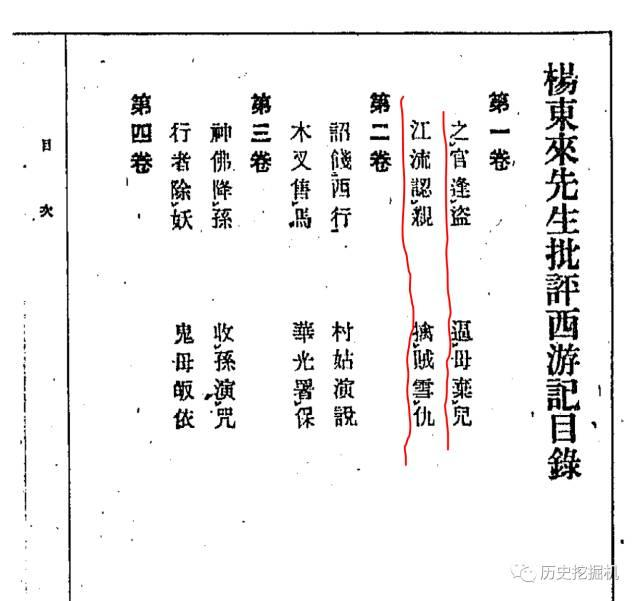 楊東來先生批評西游記目錄
第一卷
之官逢盜 逼母棄兒
江流認親 擒賊雪仇
第二卷
詔餞西行 村姑演說
木叉售馬 華光署保
第三卷
神佛降孫 收孫演咒
行者除妖 鬼母皈依
第四卷
目次
历史挖掘机